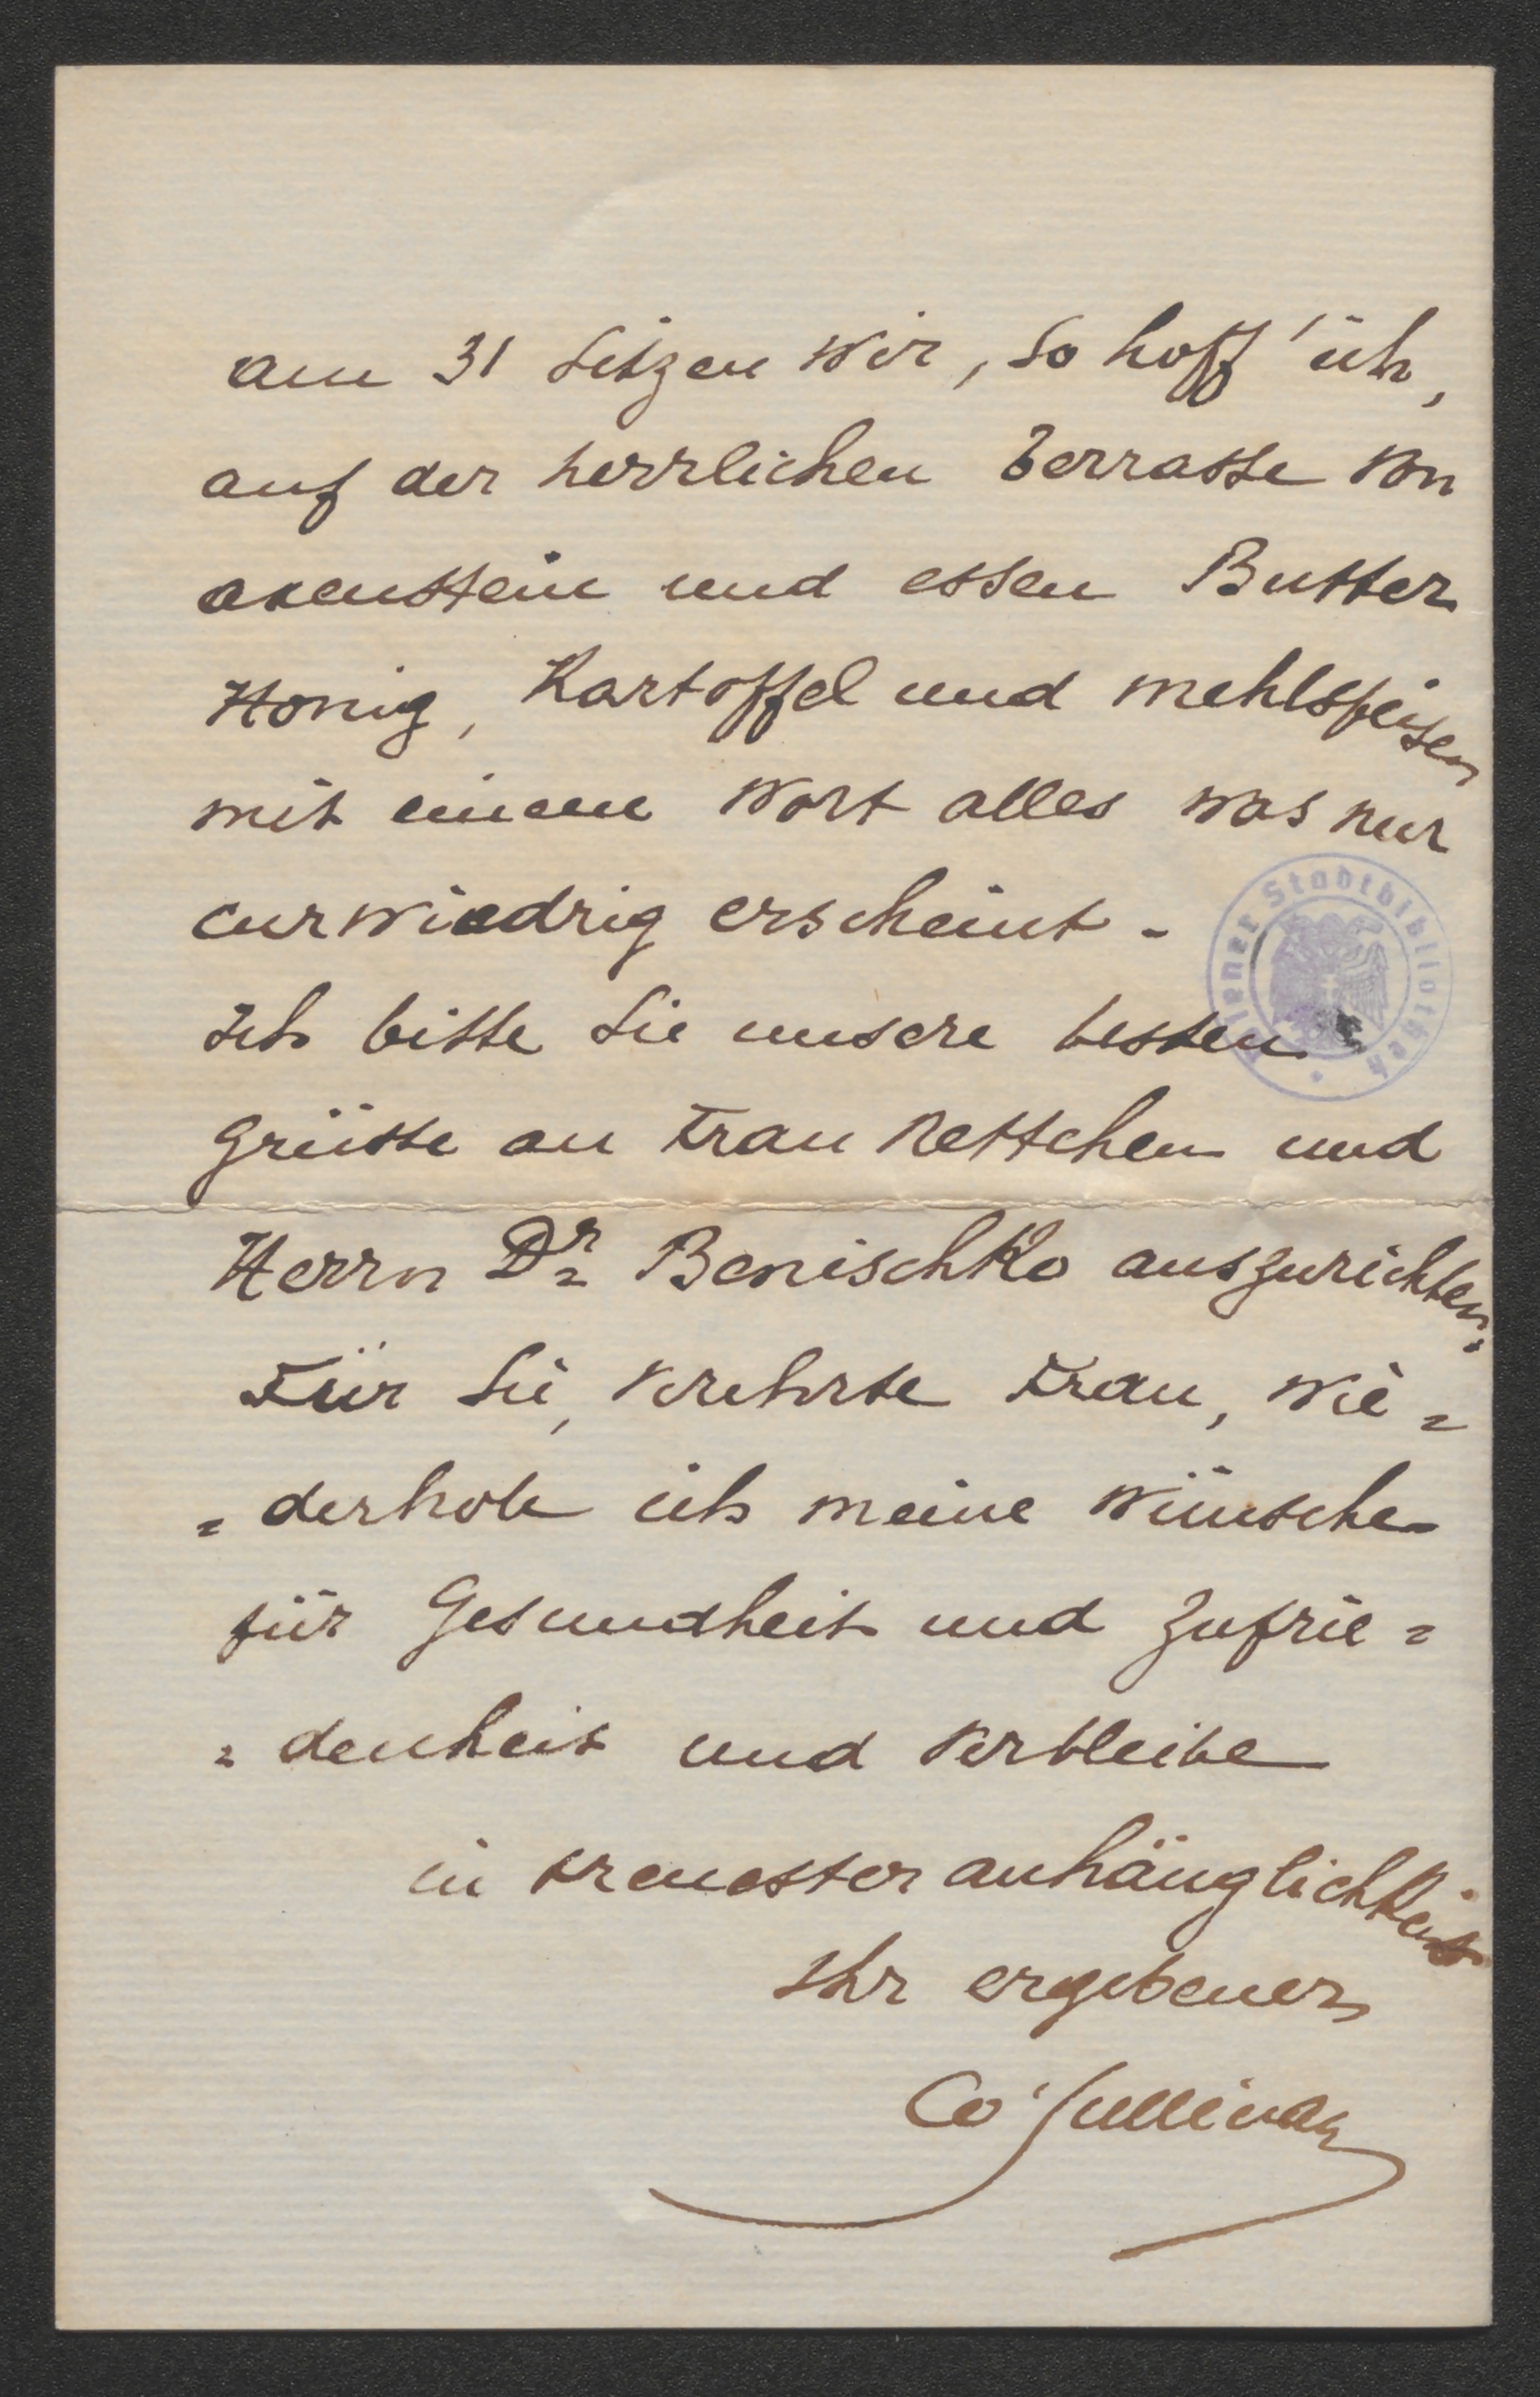 am 31 sitzen wir, so hoff' ich,
auf der herrlichen Terrasse von
axenstein und essen Butter
Honig, Kartoffel und mehlspeisen
mit einem Wort alles was nur
curwiedrig erscheint -
Ich bitte Sie unsere besten
Wiener Stadtbibliothek
grüsse an Frau Nettchen und
Herrn Dr Benischko auszurichten.
Für Sie, verehrte Frau, wie=
=derhole ich meine wünsche
für Gesundheit und Zufrie=
=denheit und verbleibe
in treuester anhänglichkeit
Ihr ergebener
CO'Sullivan